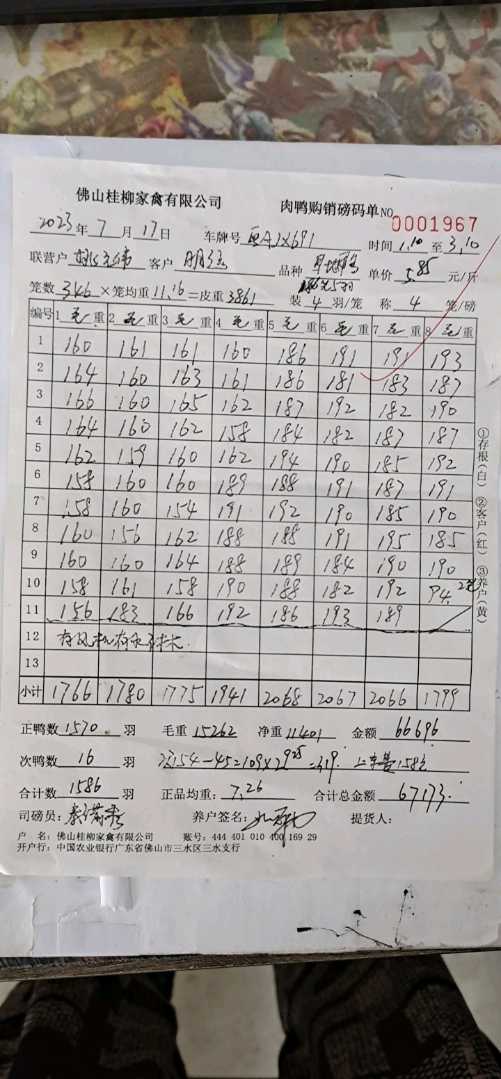 佛山桂柳家禽有限公司 肉鸭购销磅码单NO 0001967
2023年 7 月 17 日 车牌号 时间 1.10 至 3.10
联营户 客户 品种 单价 5.85 元/斤
笼数 346 ×笼均重 11.16 =皮重 3861 装 4 羽/笼 称 4 笼/磅
编号 1 毛 重 2 毛 重 3 毛 重 4 毛 重 5 毛 重 6 毛 重 7 毛 重 8 毛 重
1 160 161 161 160 186 191 191 193
2 164 160 163 161 186 181 183 187
3 166 160 165 162 187 192 182 190
4 164 160 162 158 184 182 187 187
5 162 159 160 162 194 190 185 192
6 158 160 160 189 188 191 187 191
7 158 160 154 191 192 190 185 190
8 160 156 162 188 188 191 195 185
9 160 160 164 188 189 184 190 190
10 158 161 158 190 188 182 192 94
11 156 183 166 192 186 193 189
12
13
小计 1766 1780 1775 1941 2068 2067 2066 1799
正鸭数 1570 羽 毛重 15262 净重 11401 金额 66696
次鸭数 16 羽
合计数 1586 羽 正品均重: 7.26 合计总金额 67173.
司磅员: 养户签名: 提货人:
户 名: 佛山桂柳家禽有限公司 账号: 444 401 010 400 169 29
开户行: 中国农业银行广东省佛山市三水区三水支行
①存根(白) ②客户(红) ③养户(黄)